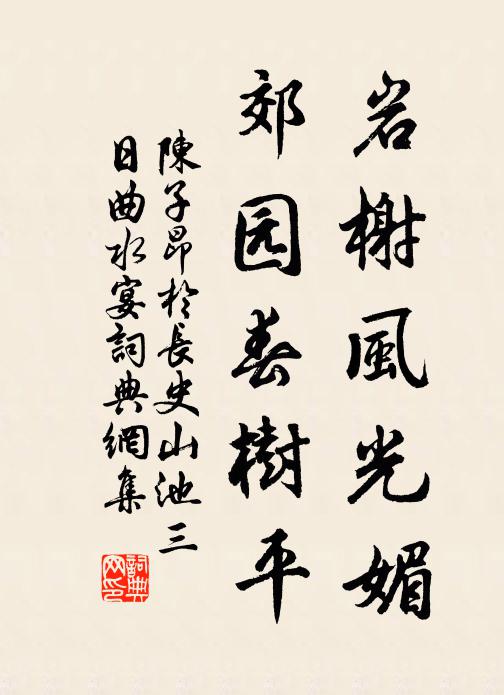 岩榭風光媚
郊园春樹平
陳子昂於長史山池三
日曲水宴詞典網集
詞典
网印